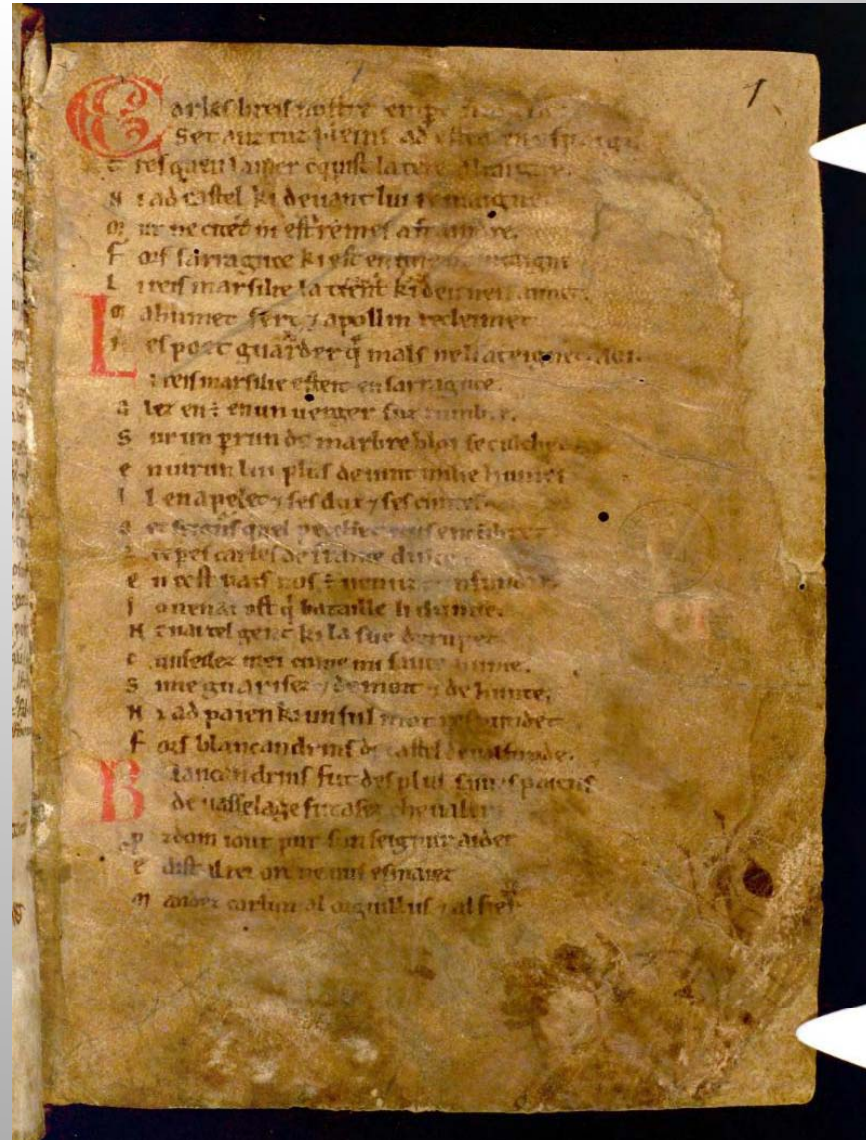 1
Carles li reis nostre
Set anz tuz pleins ad estet en espaigne
Tresquen la mer cq̃uist la tere altaigne.
Ni ad castel ki deuant lui remaigne.
Mur ne citet ni est remes a fraindre.
Fors sarraguce ki est en une muntaigne
Li reis marsilie la tient ki deu nenaimet.
Mahumet sert ⁊ apollin recleimet
Nes poet guarder q̃ mals ne li ateignet. aoi.
Li reis marsilie esteit en sarraguce.
Alez en ÷ en un uerger suz lumbre.
Sur un prun de marbre bloi se culchet
Enuirun lui plus de uint milie humes
Il en apelet ⁊ ses dux ⁊ ses cuntes
seignurs quel pecchet nus encūbret
carles de france dulce
En cest pais nos ÷ uenuz cunfundre
Jo nen ai ost q̃ bataille li dunne.
tel gent ki la sue derumpet
Cunseilez mei cume mi saiue hume.
Si me guarisez ⁊ de mort ⁊ de hunte,
Ni ad paien ki un sul mot respundet
Fors blancandrins de castel de ualfunde.
Blancandrins fut des plus saiues paiens
de uasselage fut asez cheualer
Pzdom i out pur sun seignur aider
E dist al rei ore ne uus esmaiez
Mandez carlun al orguillus ⁊ al fier